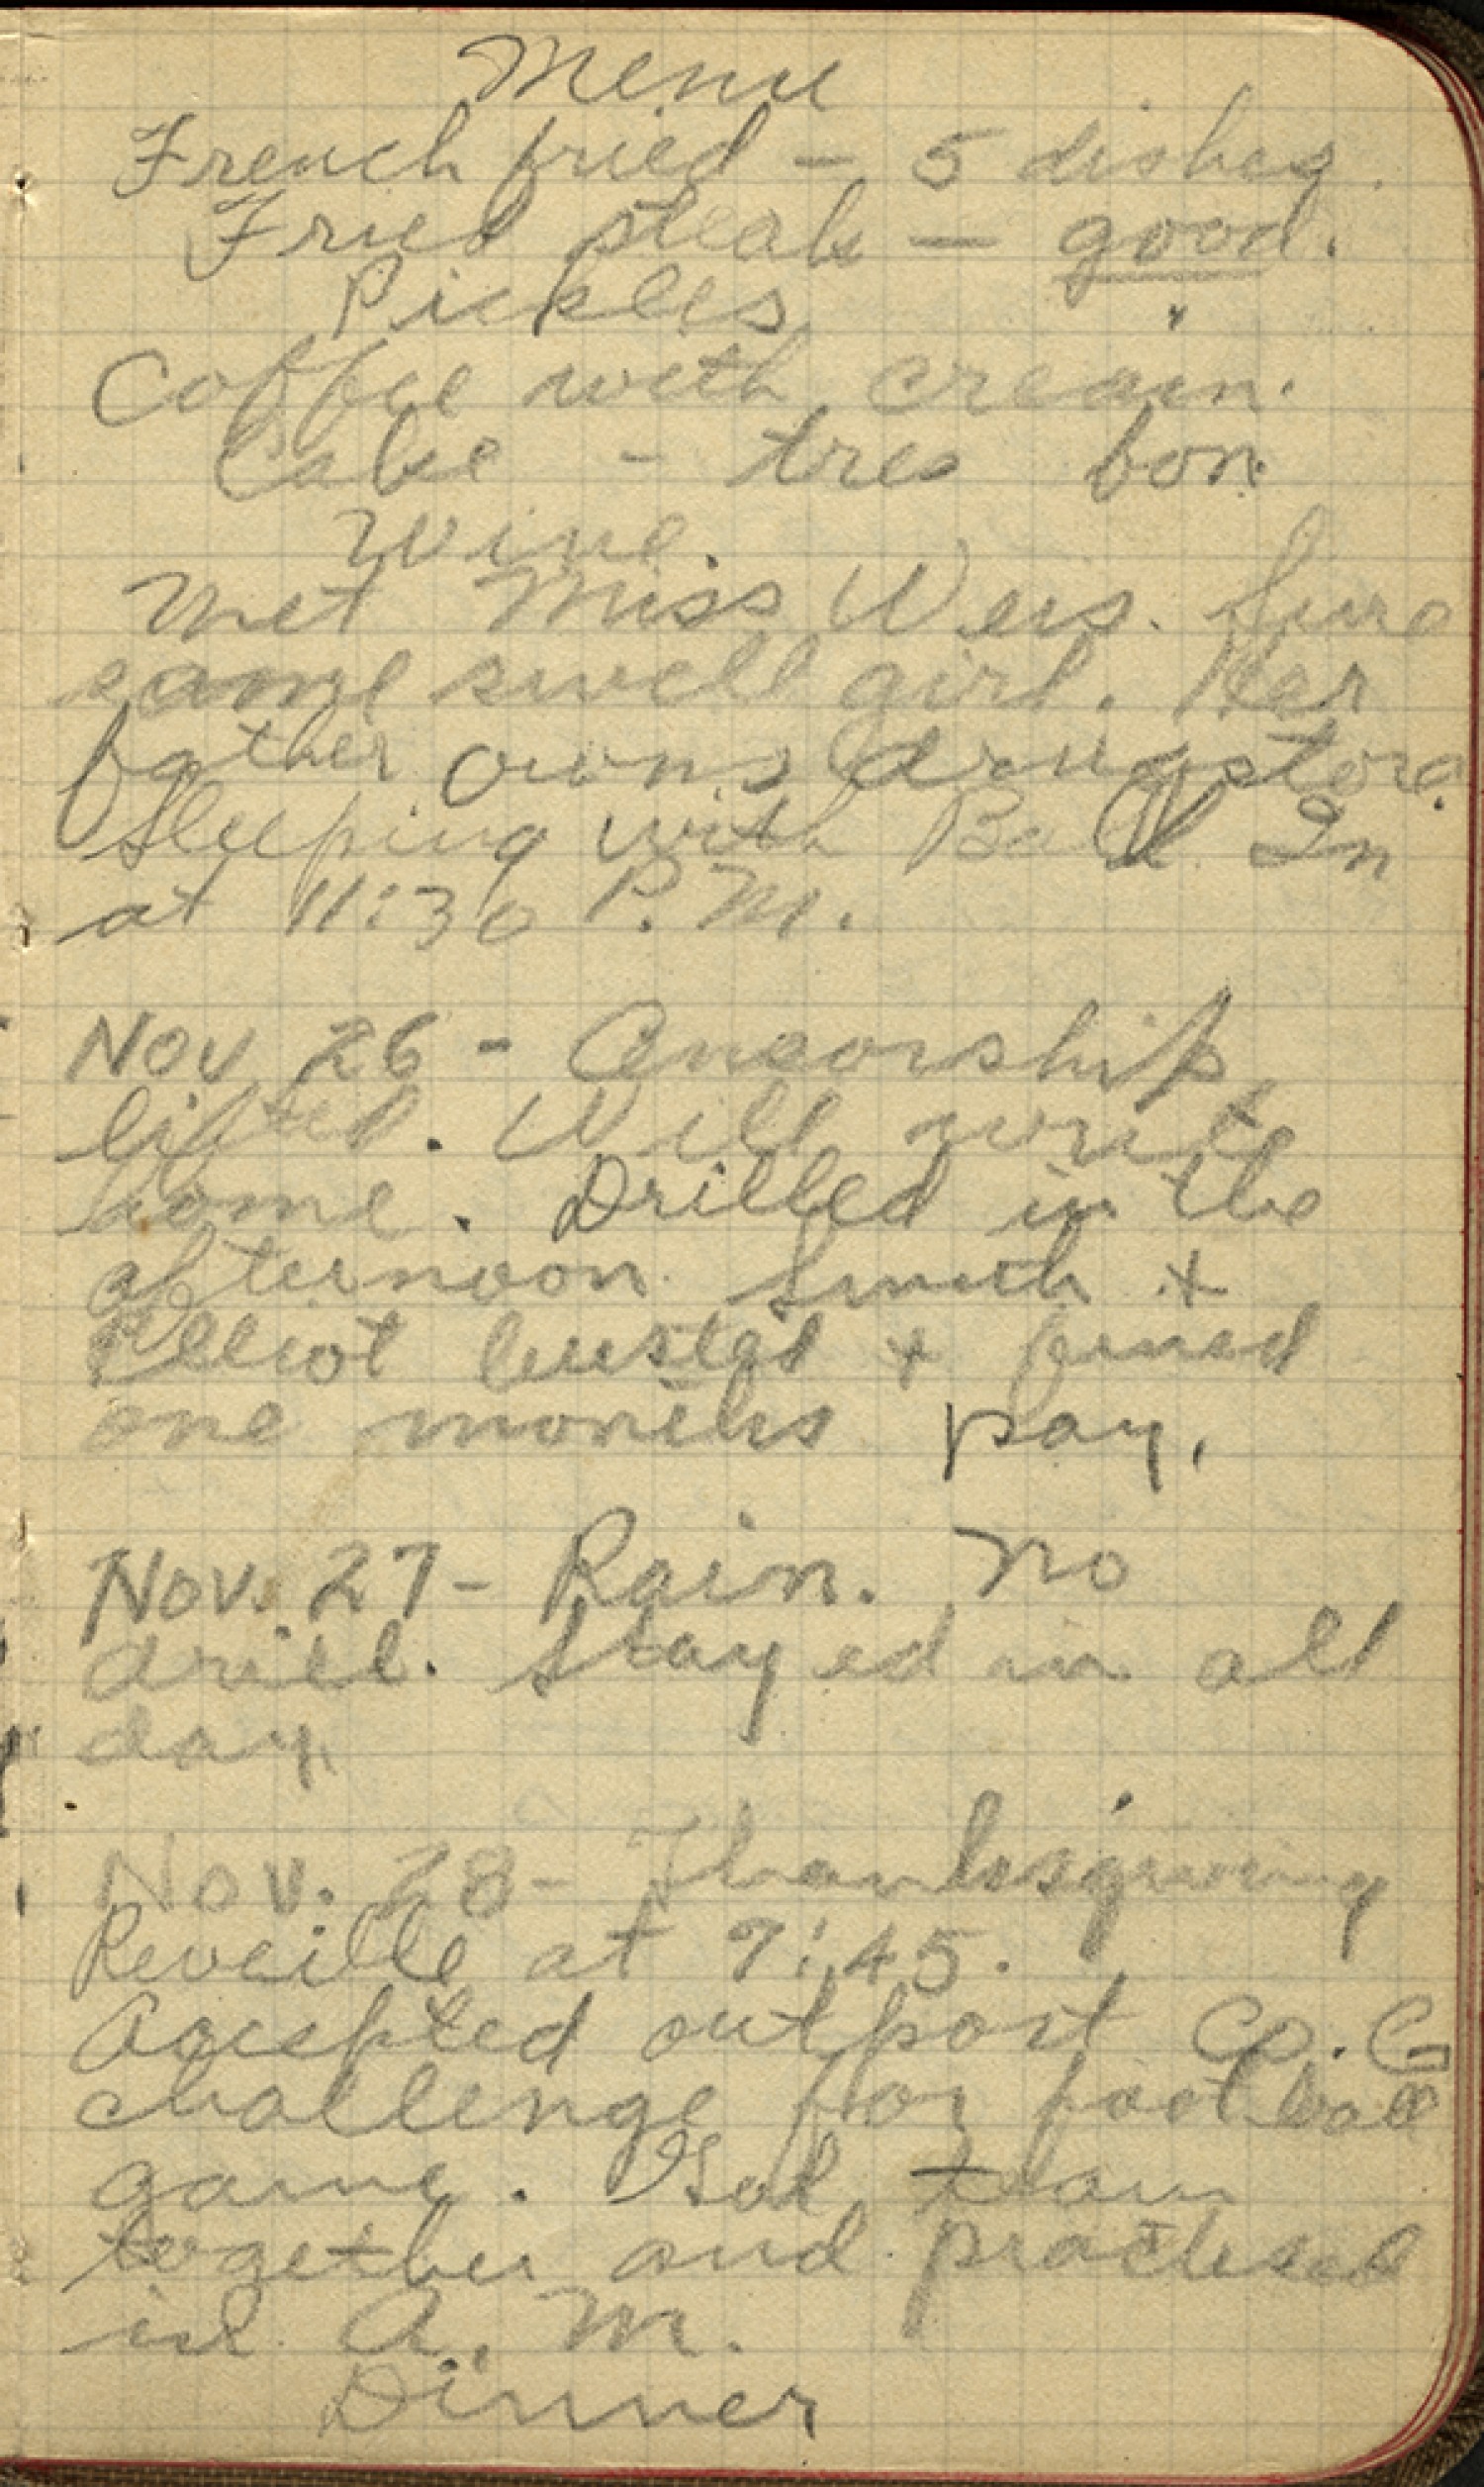 Menu
French fried – 5 dishes.
Fried steak – good.
Pickles
Coffee with cream.
Cake - tres bon.
Wine.
Met Miss Weis. Sure
some swell girl. Her
father owns drugstore.
Sleeping with Ball. In
at 11:30 P.M.
Nov 26 - Censorship
lifted. Will write
home. Drilled in the
afternoon. Smith +
Elliot busted + fined
one months pay.
Nov. 27 - Rain. No
drill. Stayed in all
day.
Nov. 28 - Thanksgiving
Reveille at 7:45.
Accepted outpost Co. G
challenge for football
game. Got team
together and practised
in A.M.
Dinner